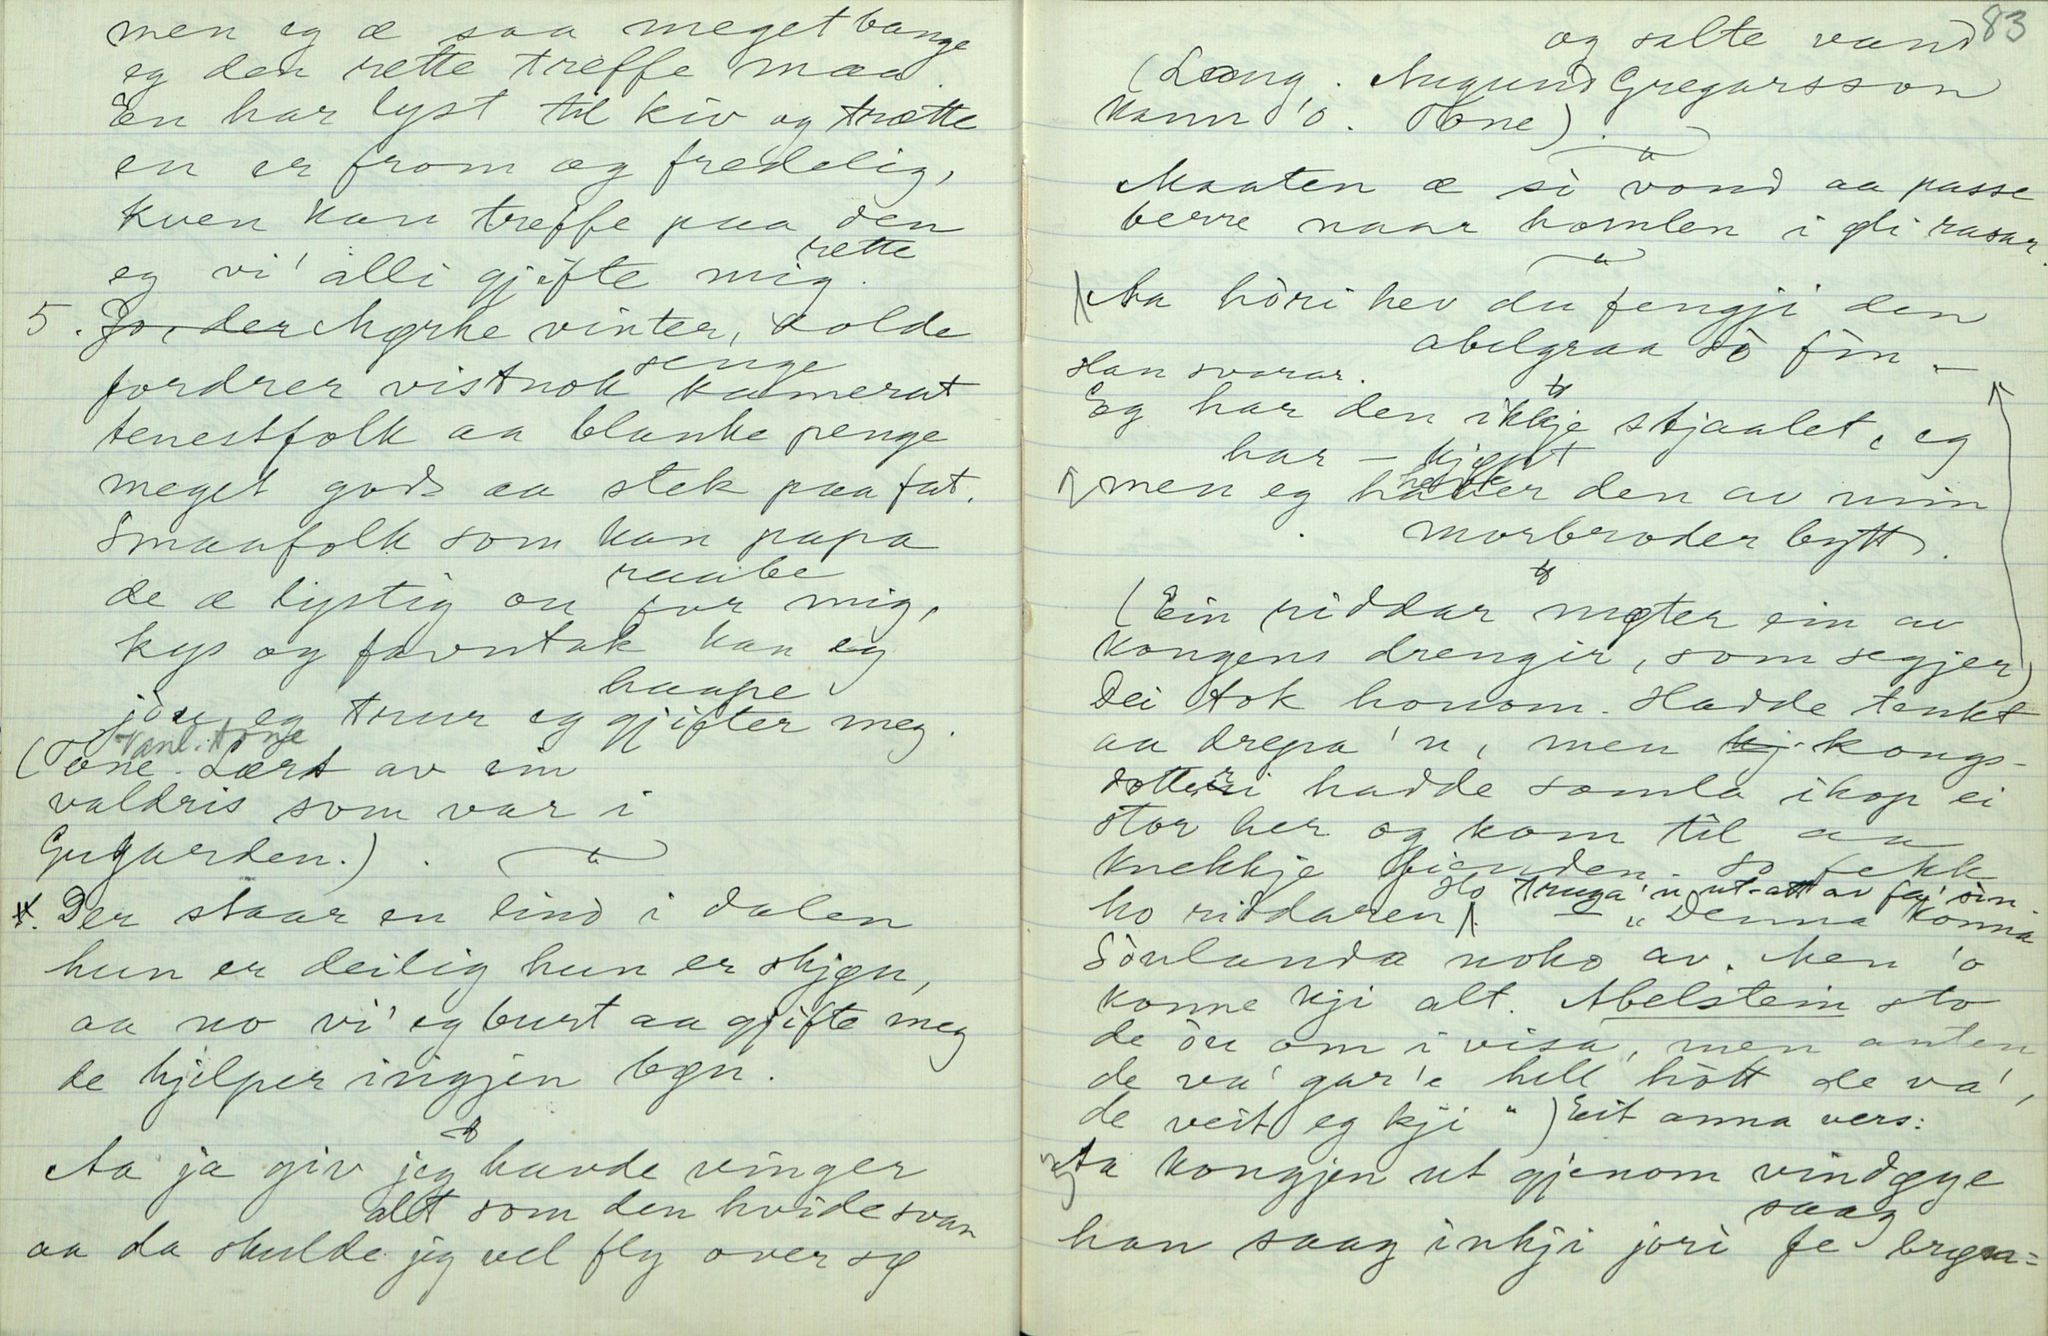 men eg æ saa meget bange
eg den rette treffe maa.
En har lyst til kiv og trætte
en er from og fredelig,
kven kan treffe paa den
rette
eg vi' alli gjifte mig.
5. Jo, der Mørke vinter, kolde
senge
fordrer vistnok kamerat
tenestfolk aa blanke penge
meget gods aa stek paa fat.
Smaafolk som kan papa
raabe
de æ lystig ou for mig,
kys og favntak kan eg
haape
jòu, eg trur eg gjifter meg.
Vanl. tone
(Tone. Lært av ein
valdris som var i
Gugarden.)
Der staar en lind i dalen
hun er deilig hun er skjøn,
aa no vi' eg burt aa gjifte meg
de hjelper ingjen bøn.
Aa ja giv jeg havde vinger
alt som den hvide svan
aa da skulde jeg vel fly over sø
83
og salte vand
(Lang. Augund Gregarsson
kann 'o. Tone).
Maaten æ sì vond aa passe
berre naar homlen i gli rasar.
Aa hòri hev du fengji den
abelgraa sò fin –
Han svarar.
Eg har den ikkje stjaalet, eg
har – kjøpt
men eg haver den av min
morbroder bytt.
(Ein riddar møter ein av
kongens drengir, som segjer)
Dei tok honom. Hadde tenkt
aa drepa 'n, men kj. kongs-
dotteri hadde samla ihop ei
stor her og kom til aa
knekkje fienden. So fekk
Ho truga 'n ut-att av fa' sin.
ho riddaren. – "Denna konna
Sòulanda noko av. Men 'o
konne kji alt. Abelstein sto
de òu om i visa, men anten
de va' gar'e hell hòtt de va',
de veit eg kji") Eit anna vers:
Aa kongjen ut gjenom vindøye
saag
han saag inkji jori fe brøn=